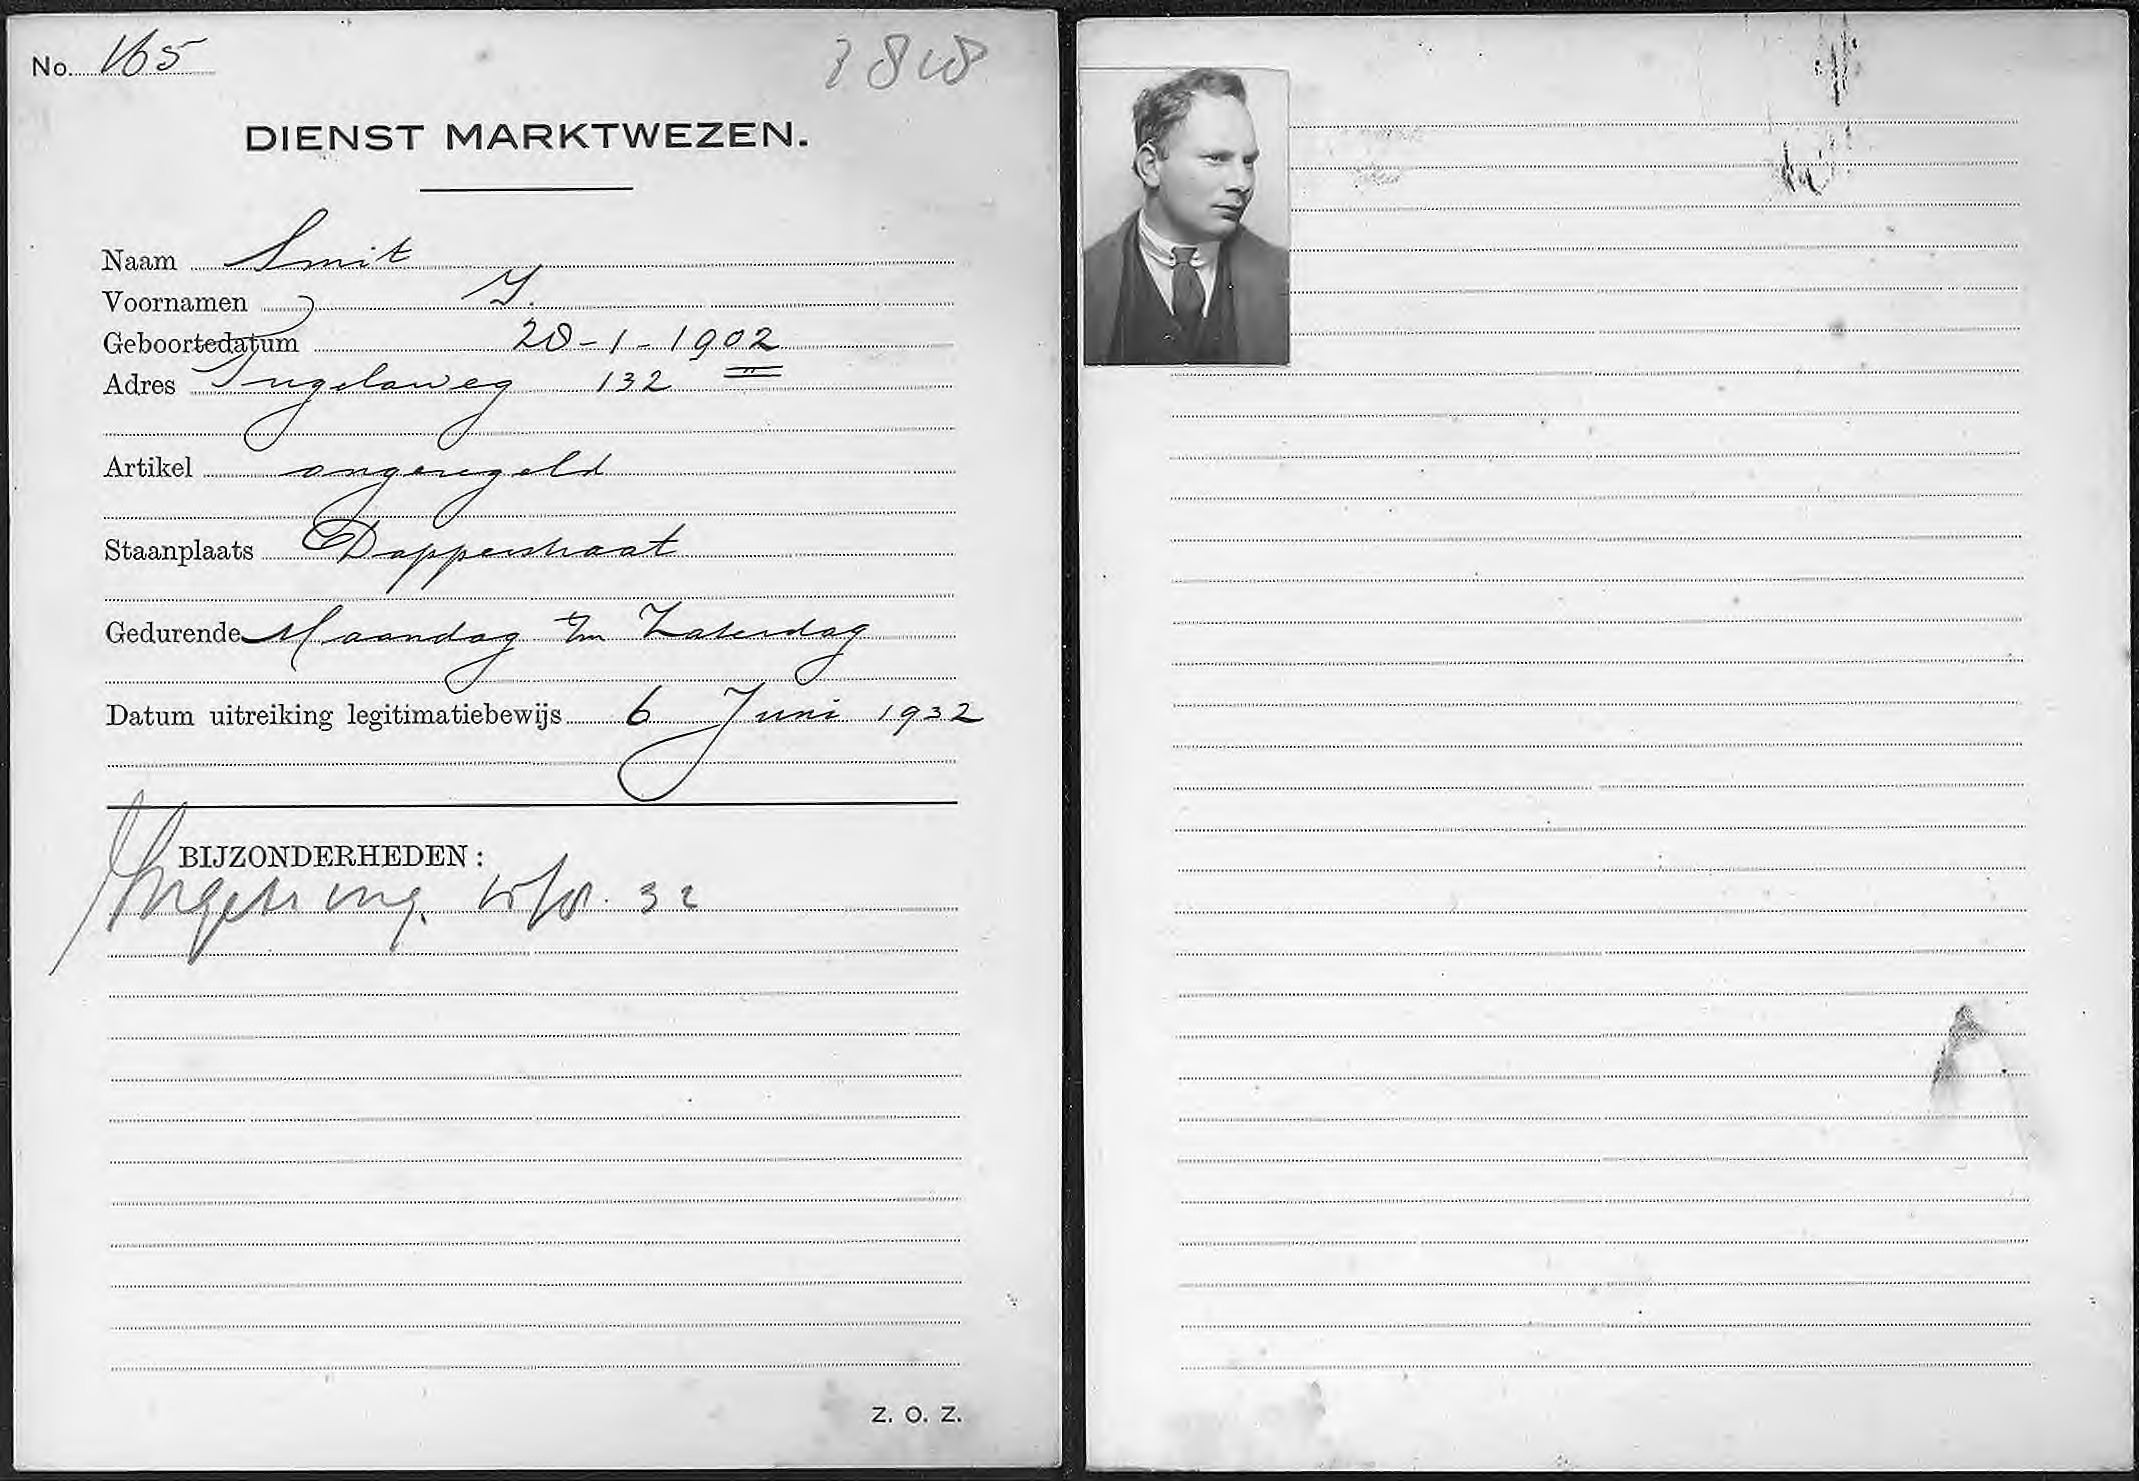 No. 165
DIENST MARKTWEZEN.
Naam Smit
Voornamen J.
Geboortedatum 28-1-1902
Adres 132
Artikel ongeregeld
Staanplaats Dapperstraat
Gedurende Maandag t/m Zaterdag
Datum uitreiking legitimatiebewijs 6 Juni 1932
BIJZONDERHEDEN:
32
Z. O. Z.